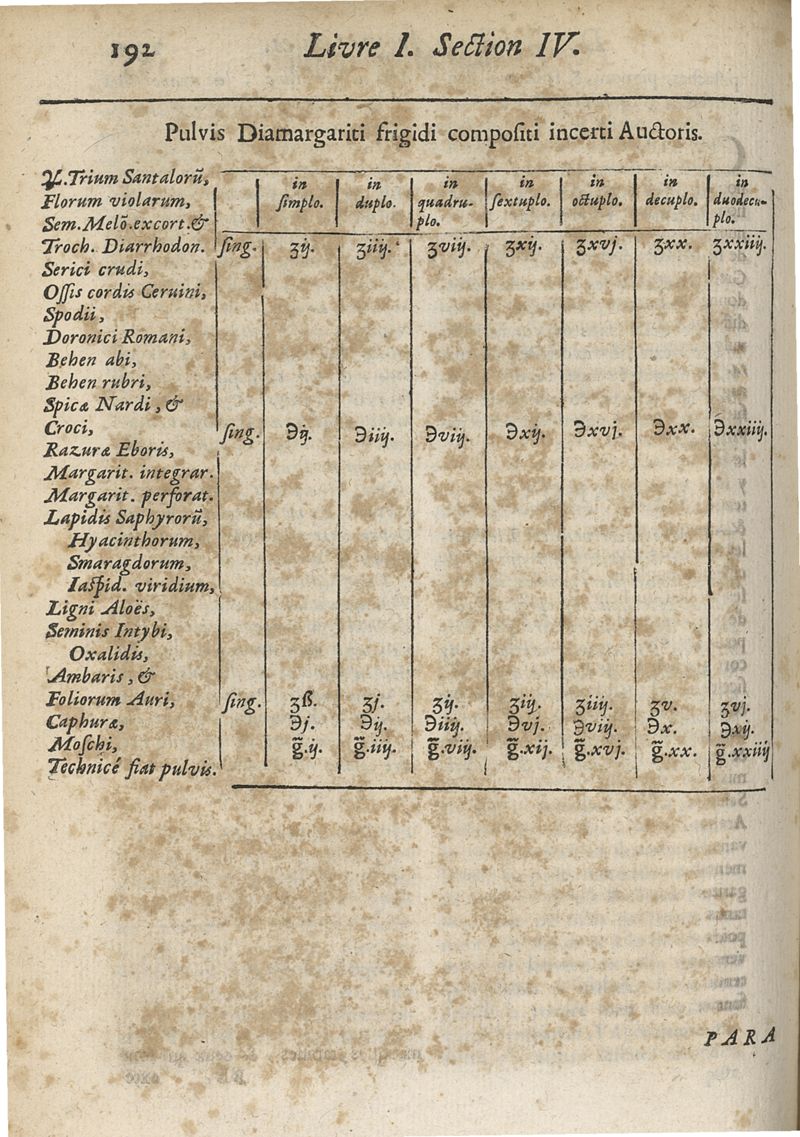 192 Livre I. Section IV.
Pulvis Diamargariti frigidi compositi incerti Auctoris.
in simplo. in duplo. in quadruplo. in sextuplo. in octuplo. in decuplo. in duodecuplo.
♃. Trium Santalorū,
Florum violarum,
Sem. Melō. excort. &
Troch. Diarrhodon. sing. ʒij. ʒiiij. ʒviij. ʒxij. ʒxvj. ʒxx. ʒxxiiij.
Serici crudi,
Ossis cordis Ceruini,
Spodii,
Doronici Romani,
Behen abi,
Behen rubri,
Spicæ Nardi, &
Croci, sing. ℈ij. ℈iiij. ℈viij. ℈xij. ℈xvj. ℈xx. ℈xxiiij.
Razuræ Eboris,
Margarit. integrar.
Margarit. perforat.
Lapidis Saphyrorū,
Hyacinthorum,
Smaragdorum,
Iaspid. viridium,
Ligni Aloës,
Seminis Intybi,
Oxalidis,
Ambaris, &
Foliorum Auri, sing. ʒß. ʒj. ʒij. ʒiij. ʒiiij. ʒv. ʒvj.
Caphuræ, ℈j. ℈ij. ℈iiij. ℈vj. ℈viij. ℈x. ℈xij.
Moschi, g̃.ij. g̃.iiij. g̃.viij. g̃.xij. g̃.xvj. g̃.xx. g̃.xxiiij
Technicé fiat pulvis.
PARA